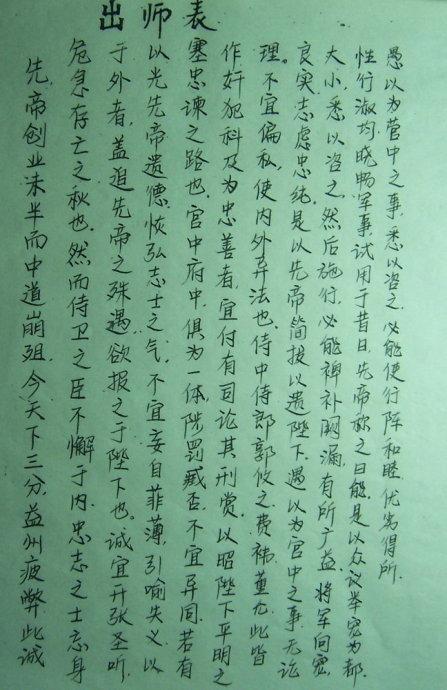 出师表
先帝创业未半而中道崩殂,今天下三分,益州疲弊,此诚
危急存亡之秋也。然而侍卫之臣不懈于内,忠志之士忘身
于外者,盖追先帝之殊遇,欲报之于陛下也。诚宜开张圣听,
以光先帝遗德,恢弘志士之气,不宜妄自菲薄,引喻失义,以
塞忠谏之路也。宫中府中,俱为一体,陟罚臧否,不宜异同。若有
作奸犯科及为忠善者,宜付有司论其刑赏,以昭陛下平明之
理。不宜偏私,使内外异法也。侍中侍郎郭攸之、费祎、董允,此皆
良实,志虑忠纯,是以先帝简拔以遗陛下。遇以为宫中之事,无论
大小,悉以咨之,然后施行,必能裨补阙漏,有所广益。将军向宠,
性行淑均,晓畅军事,试用于昔日,先帝称之曰能,是以众议举宠为都。
愚以为营中之事,悉以咨之,必能使行阵和睦,优劣得所.